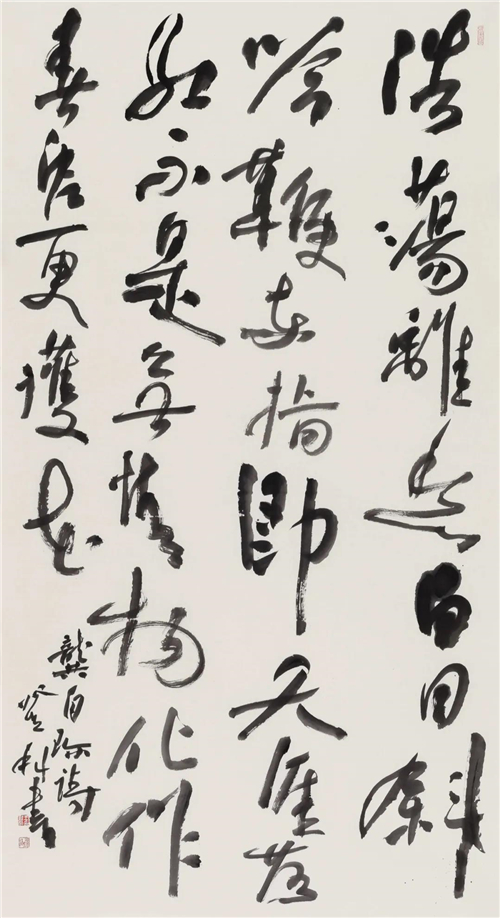 浩蕩離愁白日斜
吟鞭東指即天涯落
紅不是無情物化作
春泥更護花
龔自珍詩
登科書